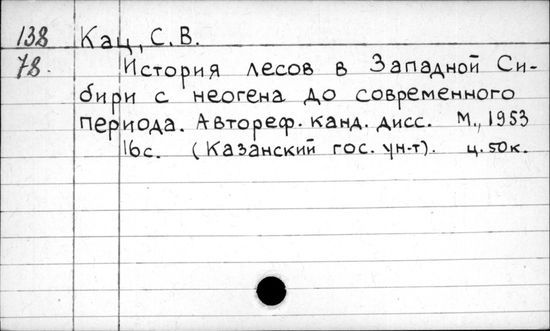 138 Кац, С. В.
78. История лесов в Западной Си-
бири с неогена до современного
периода. Автореф. канд. дисс. М., 1953
16с. (Казанский гос. ун-т). ц. 50к.